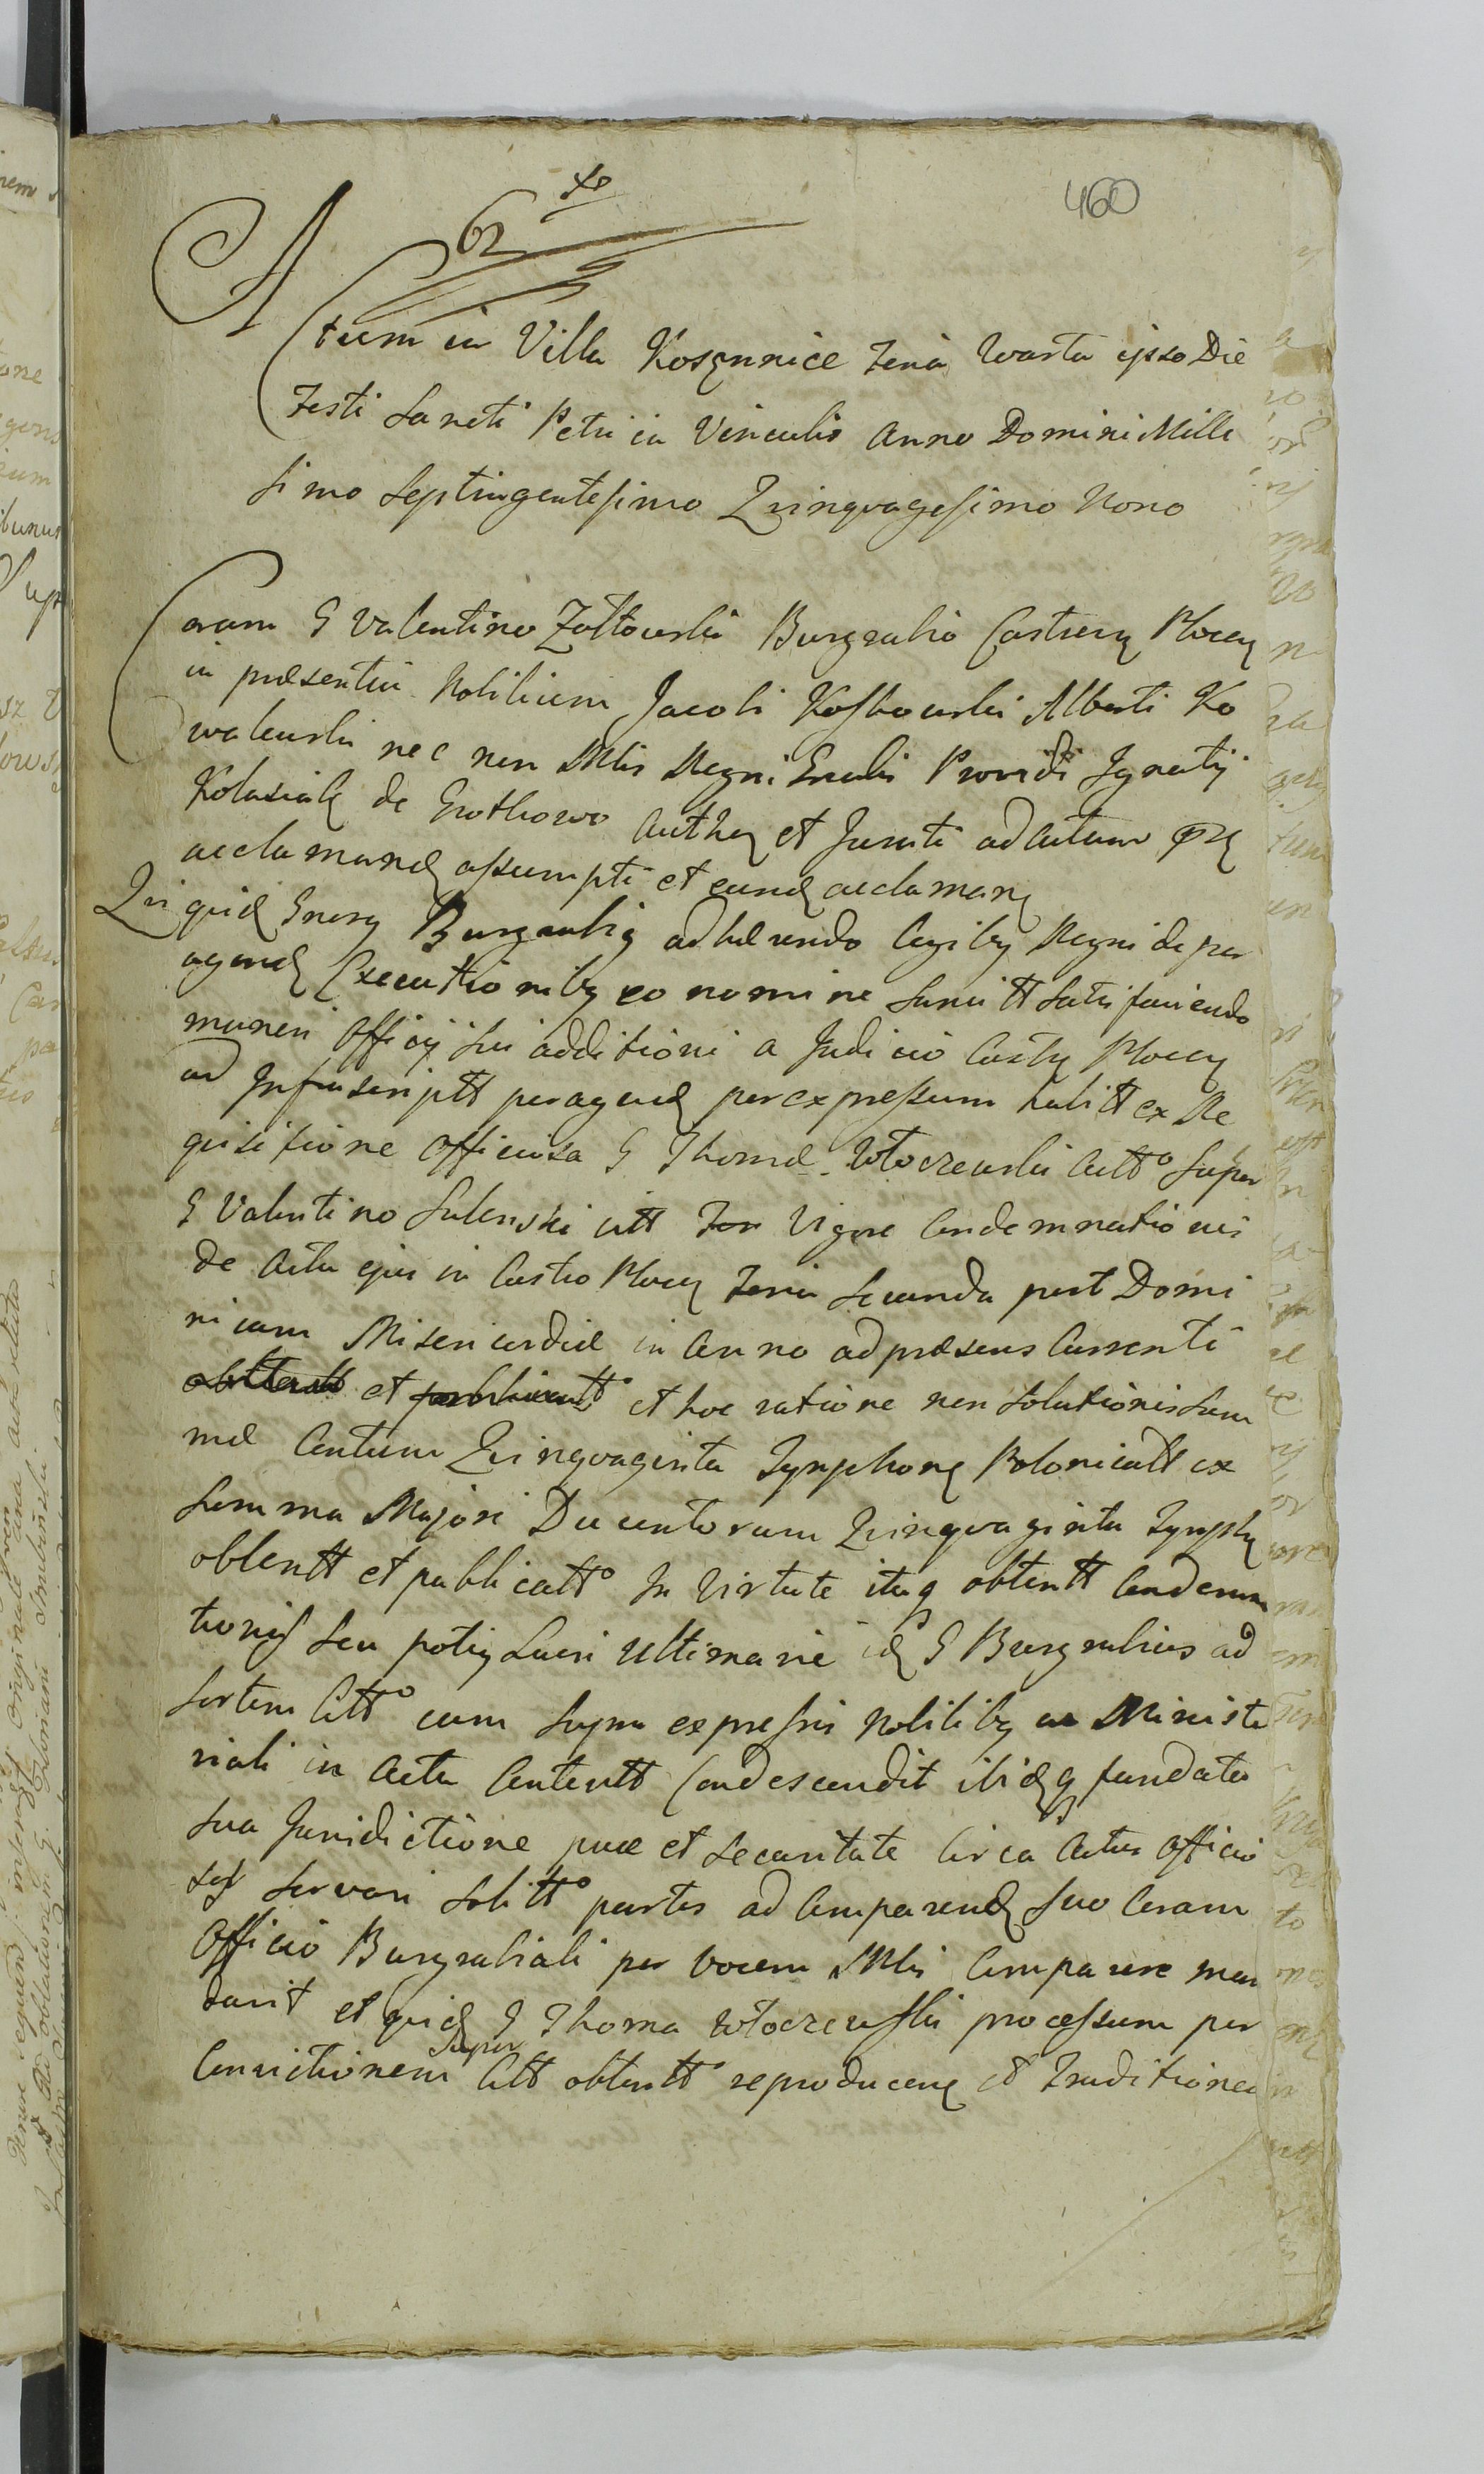 460
62
Actum in Villa Kosznnice Feria Quarta ipso Die
Festi Sancti Petri in Vinculis Anno Domini Mille
simo Septingentesimo Quinquagesimo Nono
Coram G Valentino Zołtowski Burgrabio Castren Plocen
in præsentia Nobilium Jacobi Koskowski Alberti Ko
walewski nec non Mlis Regni Gnalis Providi Ignatij
Kolasiak de authen et Jurati ad Actum
acclamand assumpti et eund acclaman
Qui quid Gneros Burgrabiq adhærendo Legibq Regni de per
agend Executionibq eo nomine sancitt satisfaciendo
muneri Officij sui additioni a Judicio Castr Plocen
ad Infrascriptt peragend per expressum habitt ex Re
quisitione Officiosa G Thomæ Włoczewski Actto super
G Valentino Sulenski citt Vigore Condemnationis
de Actu ejus in Castro Plocen Feria Secunda post Domi
nicam Misericordiæ in Anno ad præsens Currenti
et et hoc ratione non solutionis Sum
mæ Centum Quinquaginta Tynphon Polonicatt ex
Summa Majori Ducentorum Quinquaginta Tynph
obtentt et publicatto In Virtute itaq obtentt Condemna
tionis seu potiq Lucri Ultimarie id G Burgrabius ad
sortem Citto cum supra expressis Nobilibq ac Ministe
riali in Actu Contentt Condescendit ibidq fundata
sua Jurisdictione pace et securitate circa Actus Officio
sos servari solitto partes ad Comparend suo Coram
Officio Burgrabiali per vocem Mlis Comparere man
davit et quid G Thoma Włoczewski processum per
Convictionem super Citt obtentt reproducen et Traditionem